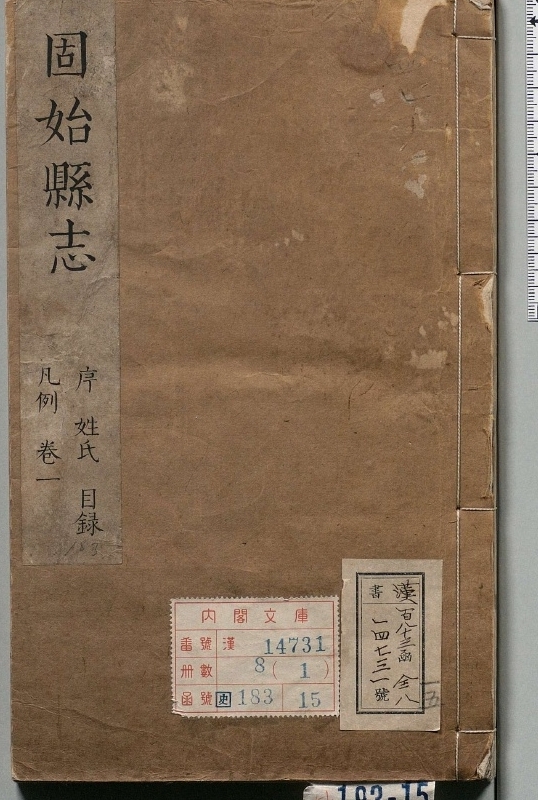 固始縣志
序 姓氏 目録
凡例 卷一
183
內閣文庫
番號 漢 14731
冊數 8 ( 1 )
函號 史 183 15
漢
書 百八十三函 全八
一四七三一號
五
183-15